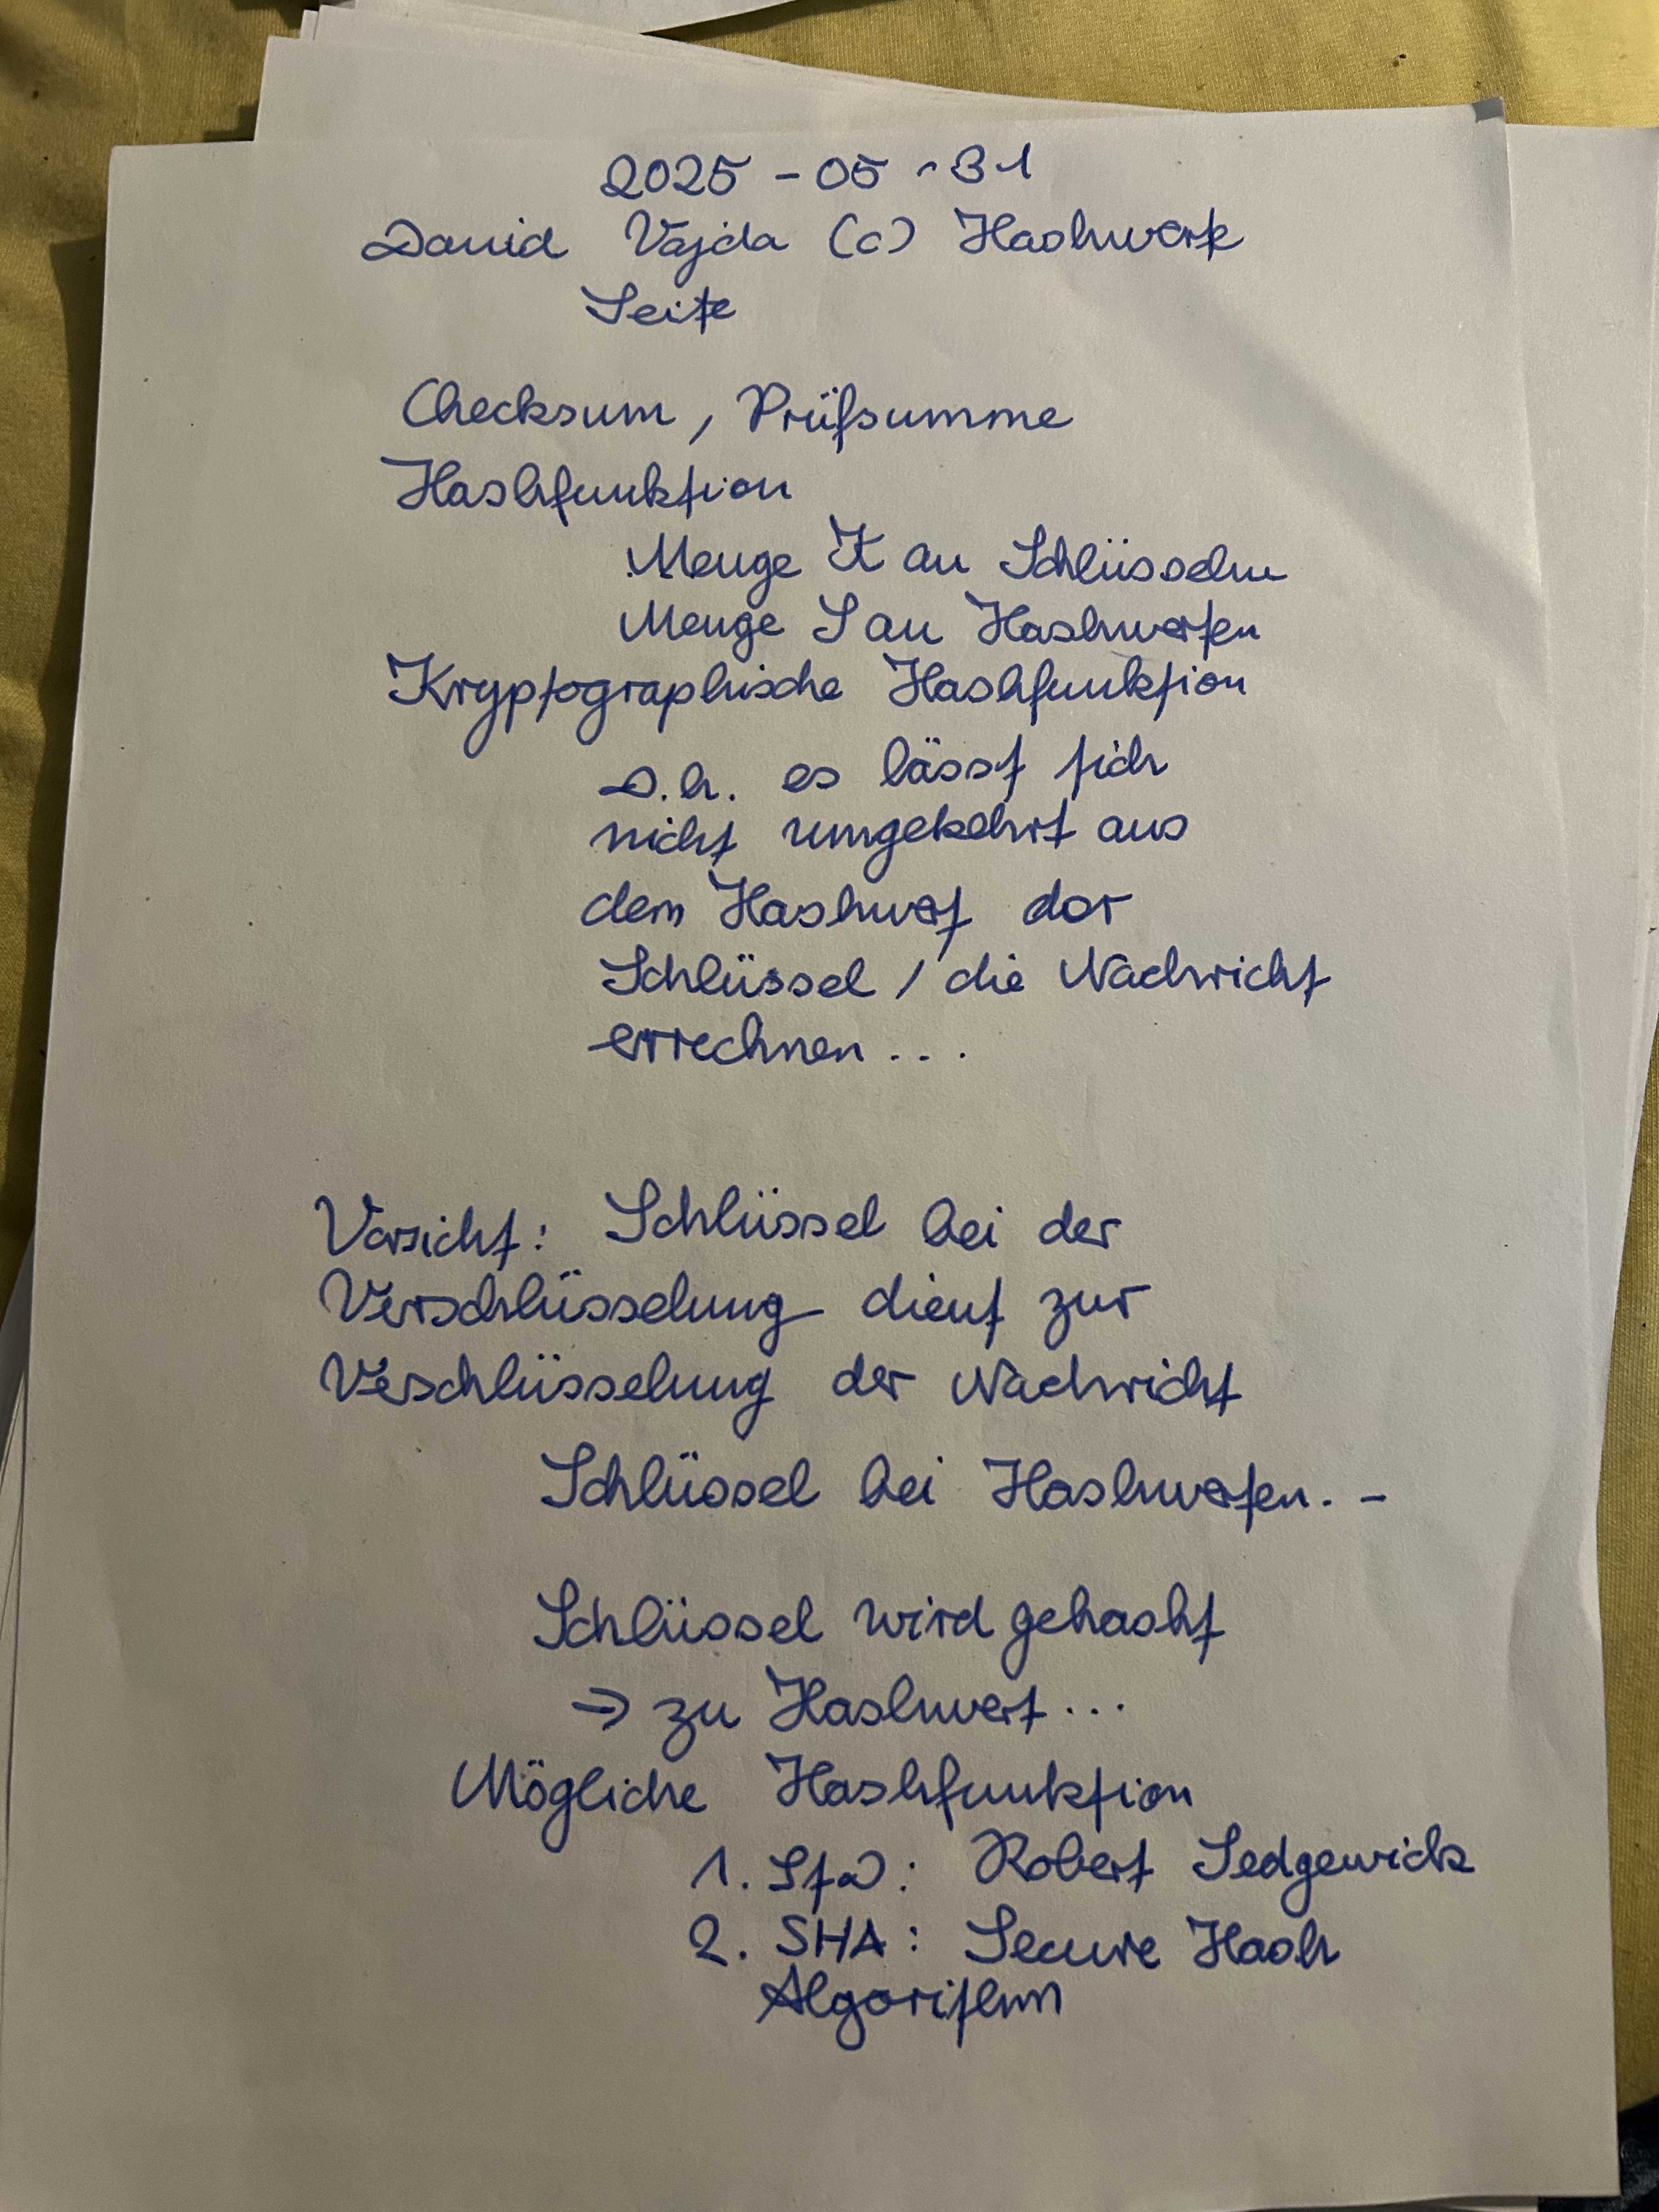 2025-05-31
David Vajda (c) Hashwerk
Seite
Checksum, Prüfsumme
Hashfunktion
Menge K an Schlüsseln
Menge S an Hashwerten
Kryptographische Hashfunktion
D.h. es lässt sich
nicht umgekehrt aus
dem Hashwert der
Schlüssel / die Nachricht
errechnen...
Vorsicht: Schlüssel bei der
Verschlüsselung dient zur
Veschlüsselung der Nachricht
Schlüssel bei Hashwerten. -
Schlüssel wird gehasht
=> zu Hashwert...
Mögliche Hashfunktion
1. : Robert Sedgewick
2. SHA: Secure Hash
Algorithm